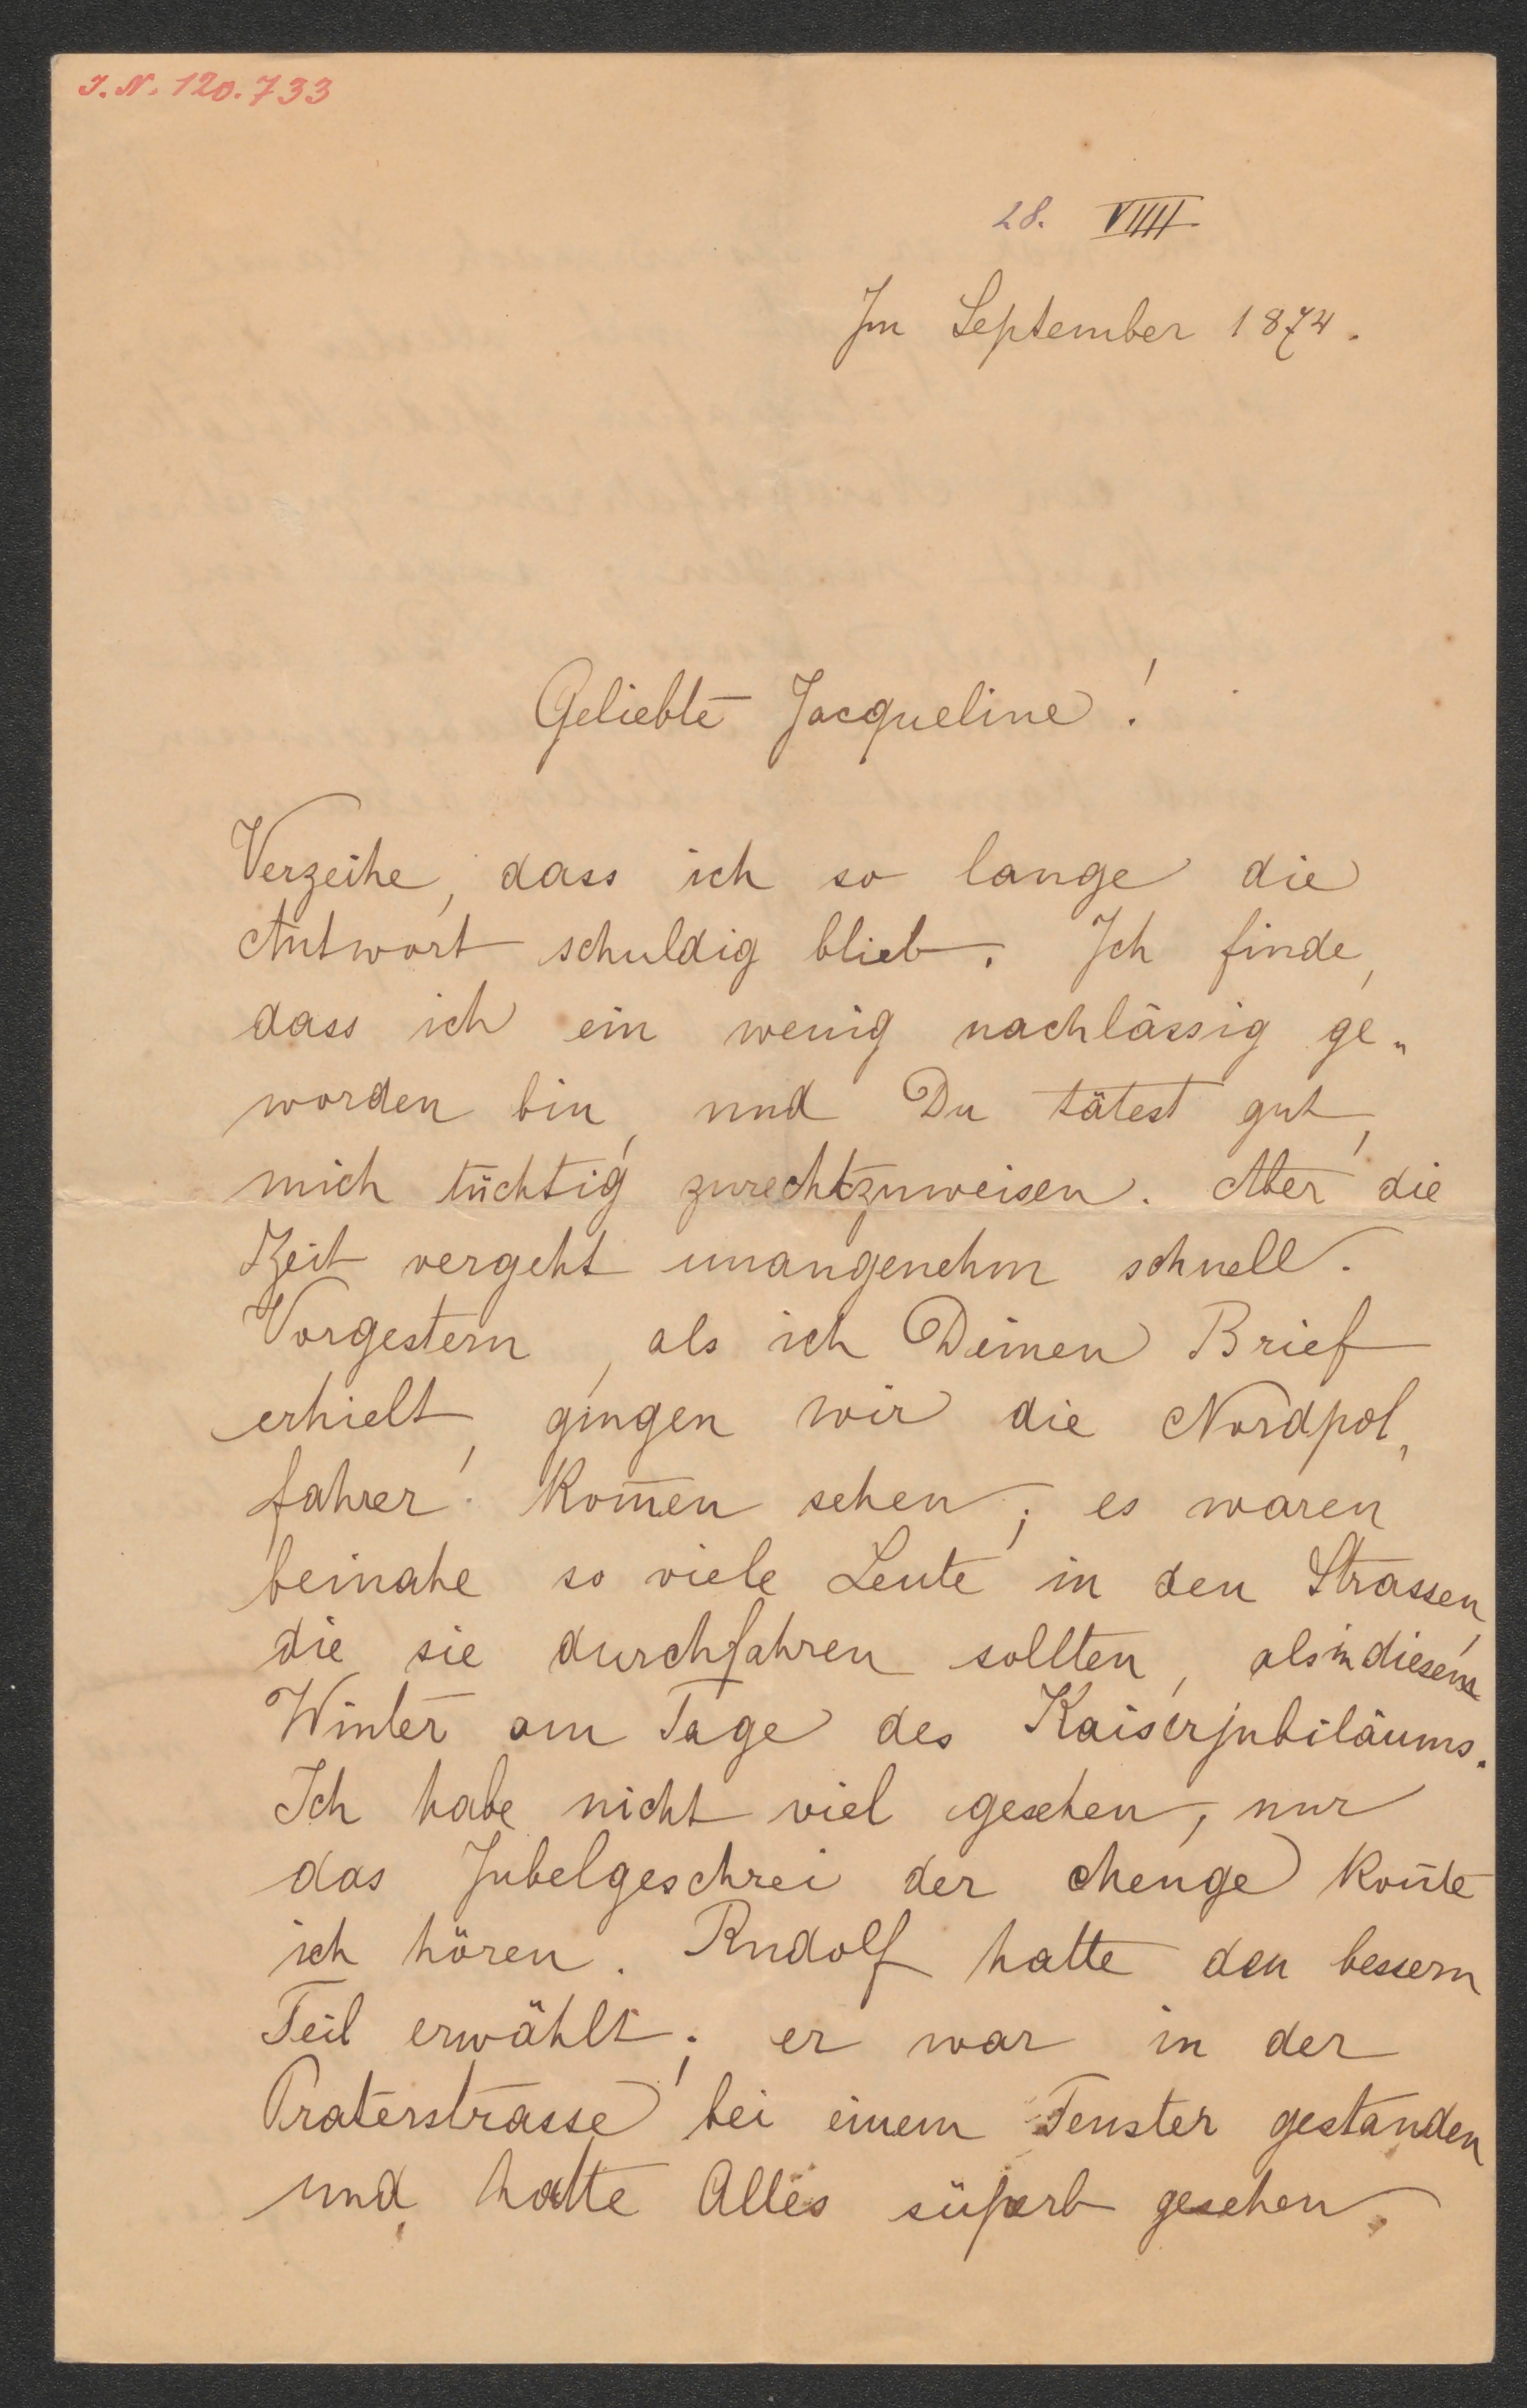 J. N. 120.733
28. VIIII
Im September 1874.
Geliebte Jacqueline!
Verzeihe, dass ich so lange die
Antwort schuldig blieb. Ich finde,
dass ich ein wenig nachlässig ge„
worden bin, und Du tätest gut,
mich tüchtig zurechtzuweisen. Aber die
Zeit vergeht unangenehm schnell.
Vorgestern, als ich Deinen Brief
erhielt, gingen wir die Nordpol„
fahrer kom̅en sehen; es waren
beinahe so viele Leute in den Strassen,
die sie durchfahren sollten, als in diesem
Winter am Tage des Kaiserjubiläums.
Ich habe nicht viel gesehen, nur
das Jubelgeschrei der Menge kon̅te
ich hören. Rudolf hatte den bessern
Teil erwählt; er war in der
Praterstrasse bei einem Fenster gestanden
und hatte Alles süperb gesehen.